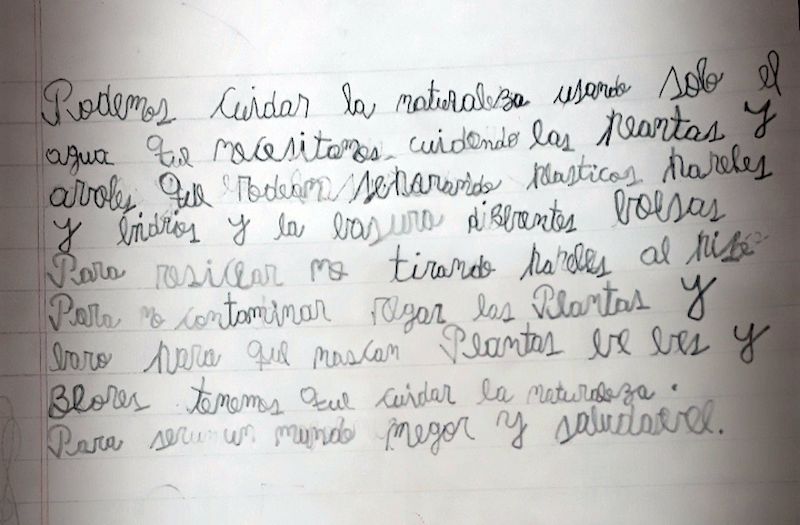 Podemos cuidar la naturaleza usando solo el
agua que necesitamos cuidendo las plantas y
avoles que rodean separando plasticos papeles
y bidrios y la basura diferentes bolsas
Para resiclar no tirando papeles al piso
Para no contaminar regar las Plantas y
para que nascan Plantas be bes y
Blores tenemos que cuidar la naturaleza.
Para ser un mundo megor y saludable.